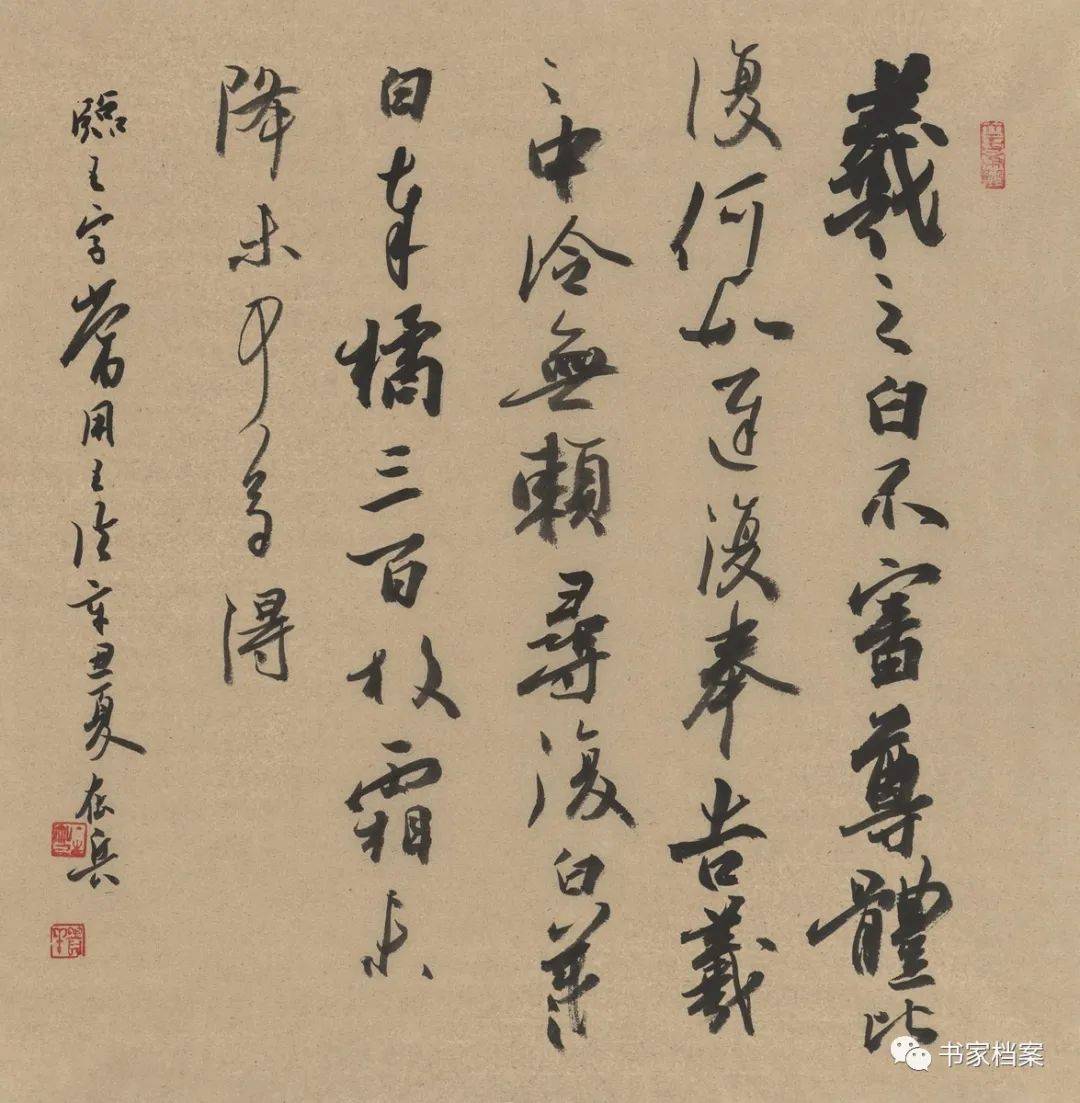 羲之白不審尊體比
復何如遲復奉告羲
之中冷無賴尋復白羲之
白奉橘三百枚霜未
降未可多得
臨王字當用王法辛丑夏在兵
书家档案